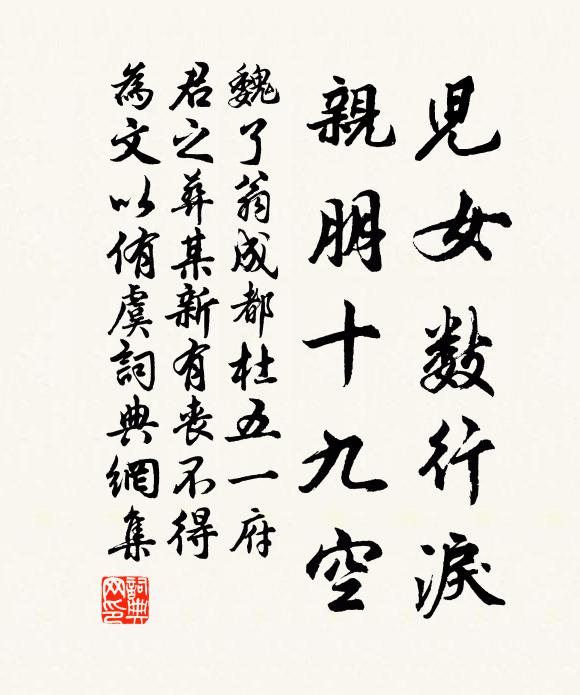 兒女數行淚
親朋十九空
魏了翁成都杜五一府
君之葬某新有喪不得
為文以侑虞詞典網集
詞典網印